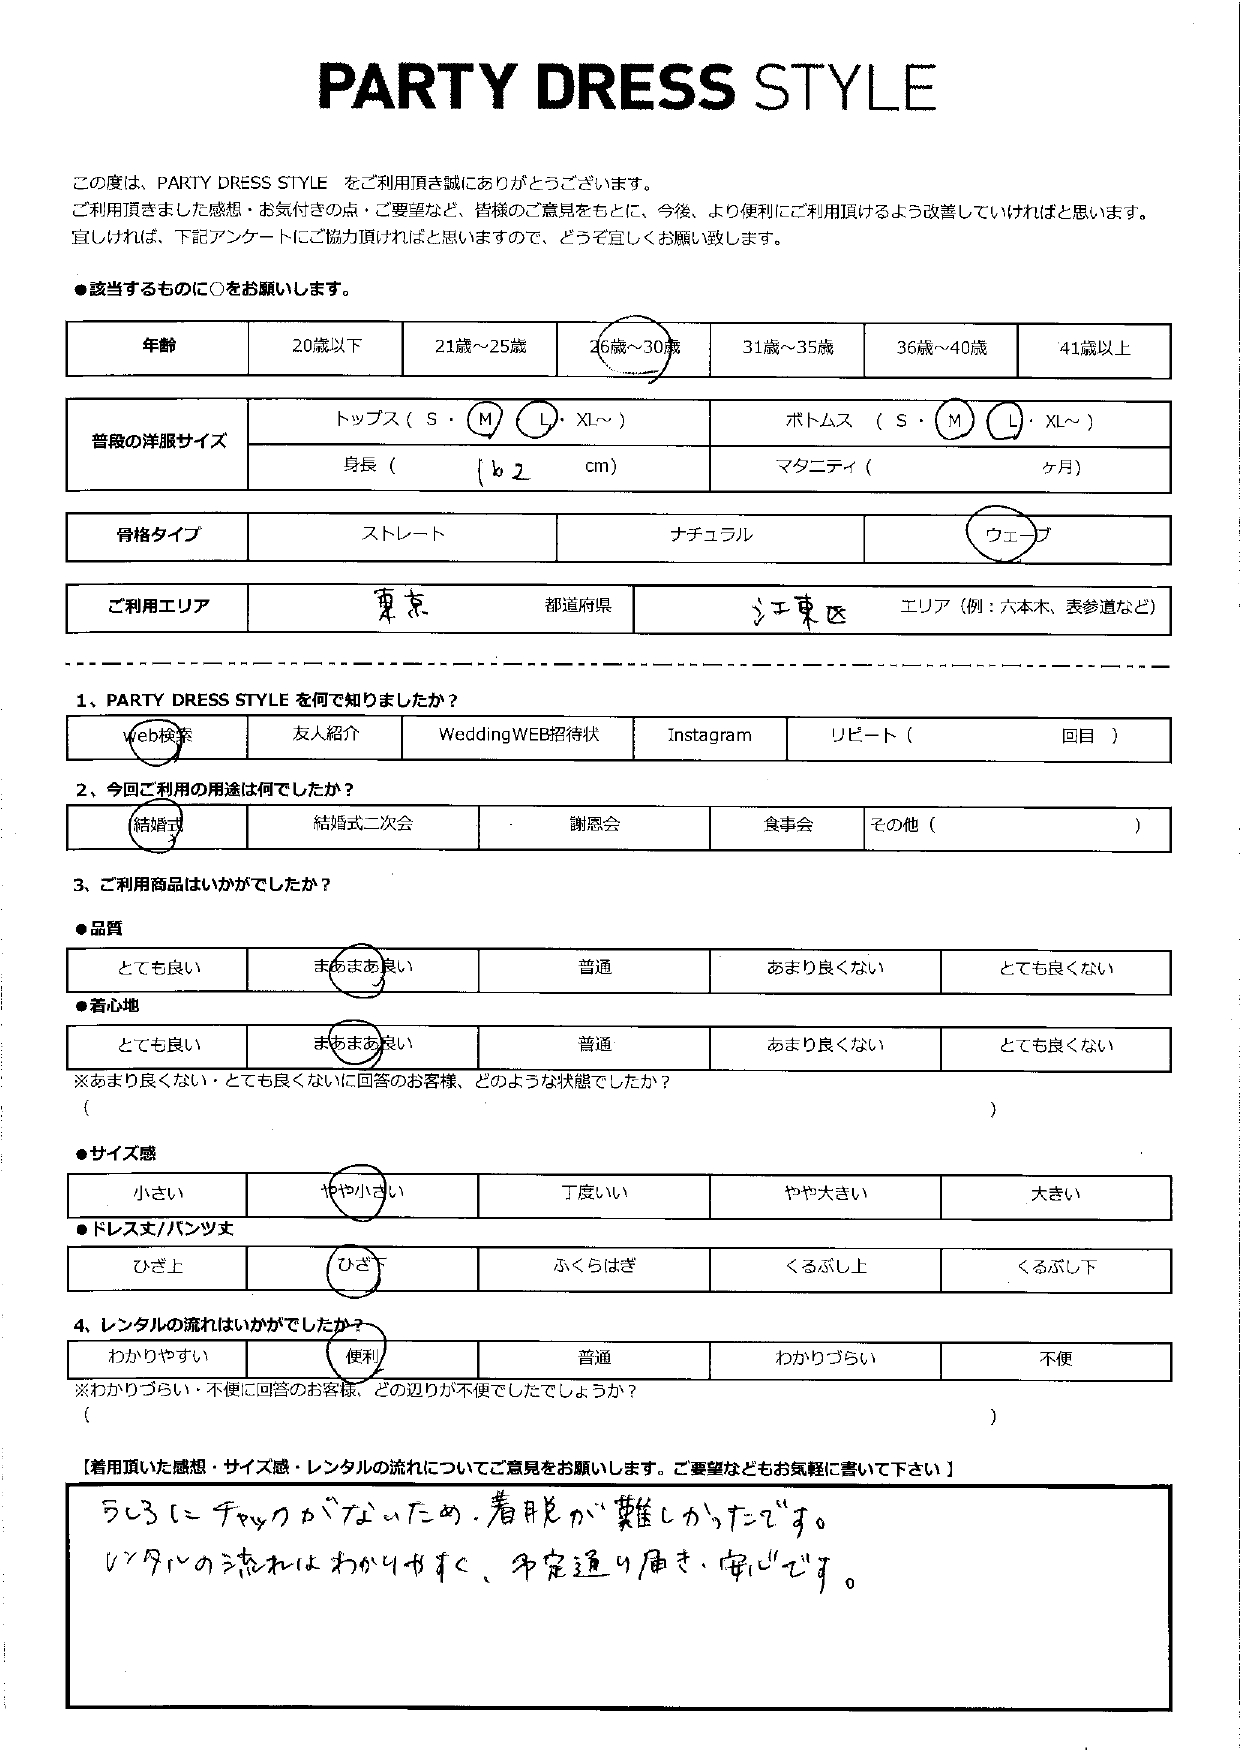 PARTY DRESS STYLE
この度は、PARTY DRESS STYLE をご利用頂き誠にありがとうございます。
ご利用頂きました感想・お気付きの点・ご要望など、皆様のご意見をもとに、今後、より便利にご利用頂けるよう改善していければと思います。
宜しければ、下記アンケートにご協力頂ければと思いますので、どうぞ宜しくお願い致します。
●該当するものに○をお願いします。
年齢 20歳以下 21歳～25歳 26歳～30歳 31歳～35歳 36歳～40歳 41歳以上
普段の洋服サイズ
トップス ( S ・ M ・ L ・ XL～ ) ボトムス ( S ・ M ・ L ・ XL～ )
身長 ( 162 cm) マタニティ ( ヶ月)
骨格タイプ ストレート ナチュラル ウェーブ
ご利用エリア 東京 都道府県 江東区 エリア（例：六本木、表参道など）
1、PARTY DRESS STYLE を何で知りましたか？
web検索 友人紹介 WeddingWEB招待状 Instagram リピート ( 回目 )
2、今回ご利用の用途は何でしたか？
結婚式 結婚式二次会 謝恩会 食事会 その他 ( )
3、ご利用商品はいかがでしたか？
●品質
とても良い まあまあ良い 普通 あまり良くない とても良くない
●着心地
とても良い まあまあ良い 普通 あまり良くない とても良くない
※あまり良くない・とても良くないに回答のお客様、どのような状態でしたか？
( )
●サイズ感
小さい やや小さい 丁度いい やや大きい 大きい
●ドレス丈/パンツ丈
ひざ上 ひざ下 ふくらはぎ くるぶし上 くるぶし下
4、レンタルの流れはいかがでしたか？
わかりやすい 便利 普通 わかりづらい 不便
※わかりづらい・不便に回答のお客様、どの辺りが不便でしたでしょうか？
( )
【着用頂いた感想・サイズ感・レンタルの流れについてご意見をお願いします。ご要望などもお気軽に書いて下さい 】
うしろにチャックがないため、着脱が難しかったです。
レンタルの流れはわかりやすく、予定通り届き、安心です。